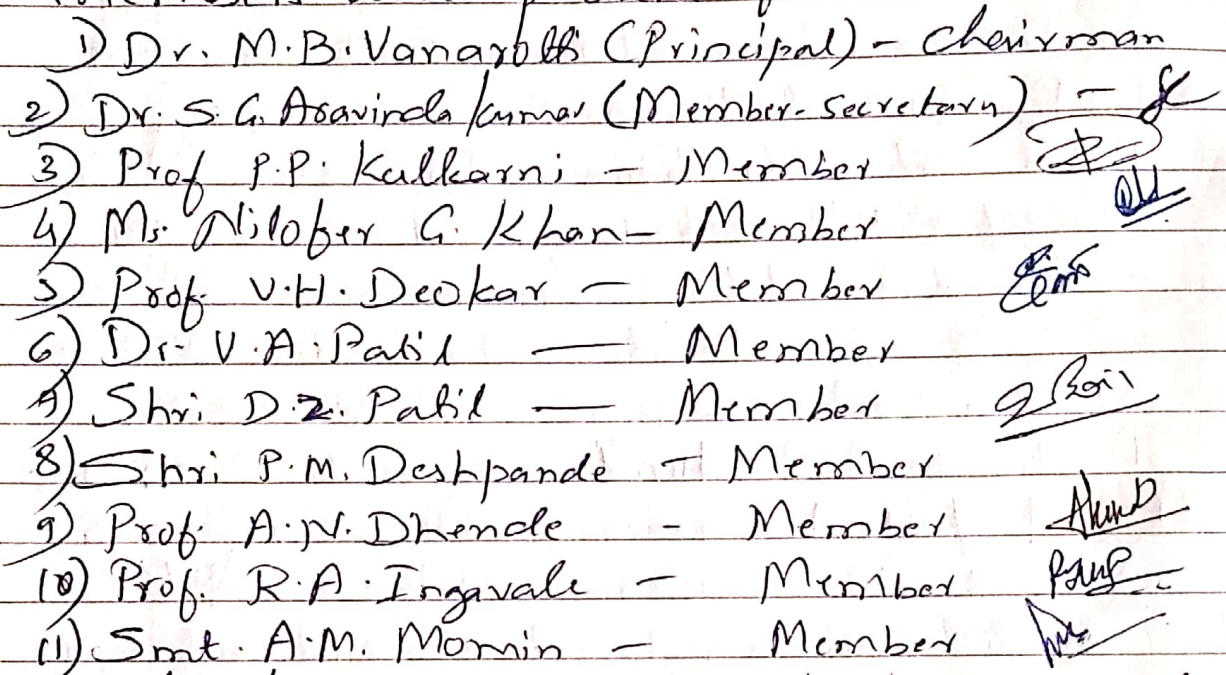 1) Dr. M.B. Vanarotti (Principal) - Chairman
2) Dr. S.G. Aravinda kumar (Member-Secretary) -
3) Prof P.P. Kulkarni - Member
4) Ms. Nilofer G. Khan - Member
5) Prof. V.H. Deokar - Member
6) Dr. V.A. Patil — Member
7) Shri D.Z. Patil — Member
8) Shri P.M. Deshpande - Member
9) Prof. A.N. Dhende - Member
10) Prof. R.A. Ingavale - Member
11) Smt. A.M. Momin - Member